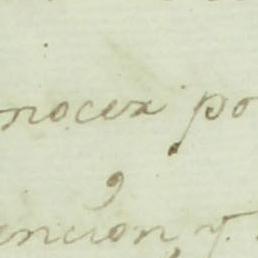 nocer po
encion, y